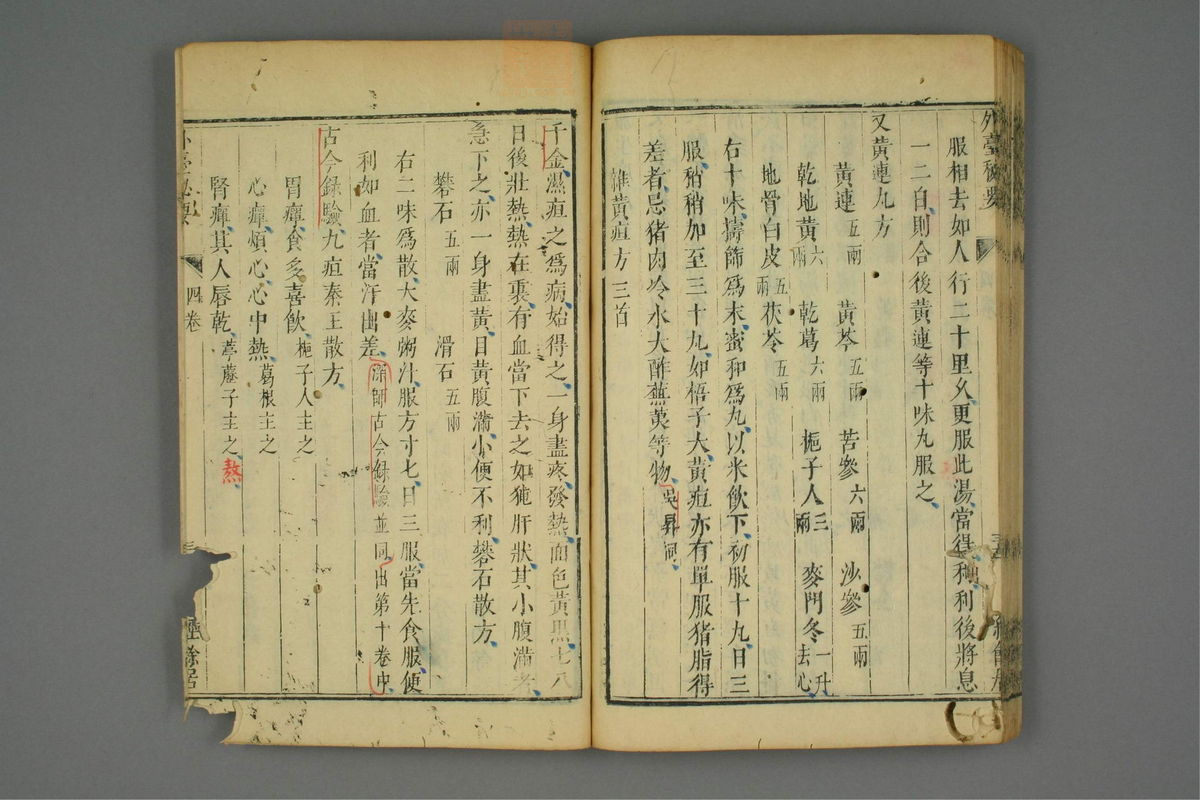 外臺秘要
服相去如人行二十里久更服此湯當得稀利後將息
一二日則合後黃連等十味丸服之
又黃連丸方
黃連五兩 黃芩五兩 苦參六兩 沙參五兩
乾地黃六兩 乾葛六兩 梔子人三兩 麥門冬一升去心
地骨白皮五兩 茯苓五兩
右十味擣篩爲末蜜和爲丸以米飲下初服十丸日三
服稍稍加至三十丸如梧子大黃疸亦有單服猪脂得
差者忌猪肉冷水大酢蕪荑等物吳昇同
雜黃疸方三首
千金濕疸之爲病始得之一身盡疼發熱面色黃黑七八
日後壯熱熱在裏有血當下去之如㹠肝狀其小腹滿者
急下之亦一身盡黃目黃腹滿小便不利礬石散方
礬石五兩 滑石五兩
右二味爲散大麥粥汁服方寸匕日三服當先食服便
利如血者當汗出差深師古今錄驗並同出第十卷中
古今錄驗九疸秦王散方
胃癉食多喜飲梔子人主之
心癉煩心心中熱葛根主之
腎癉其人唇乾葶藶子主之熬
四卷
經餘居